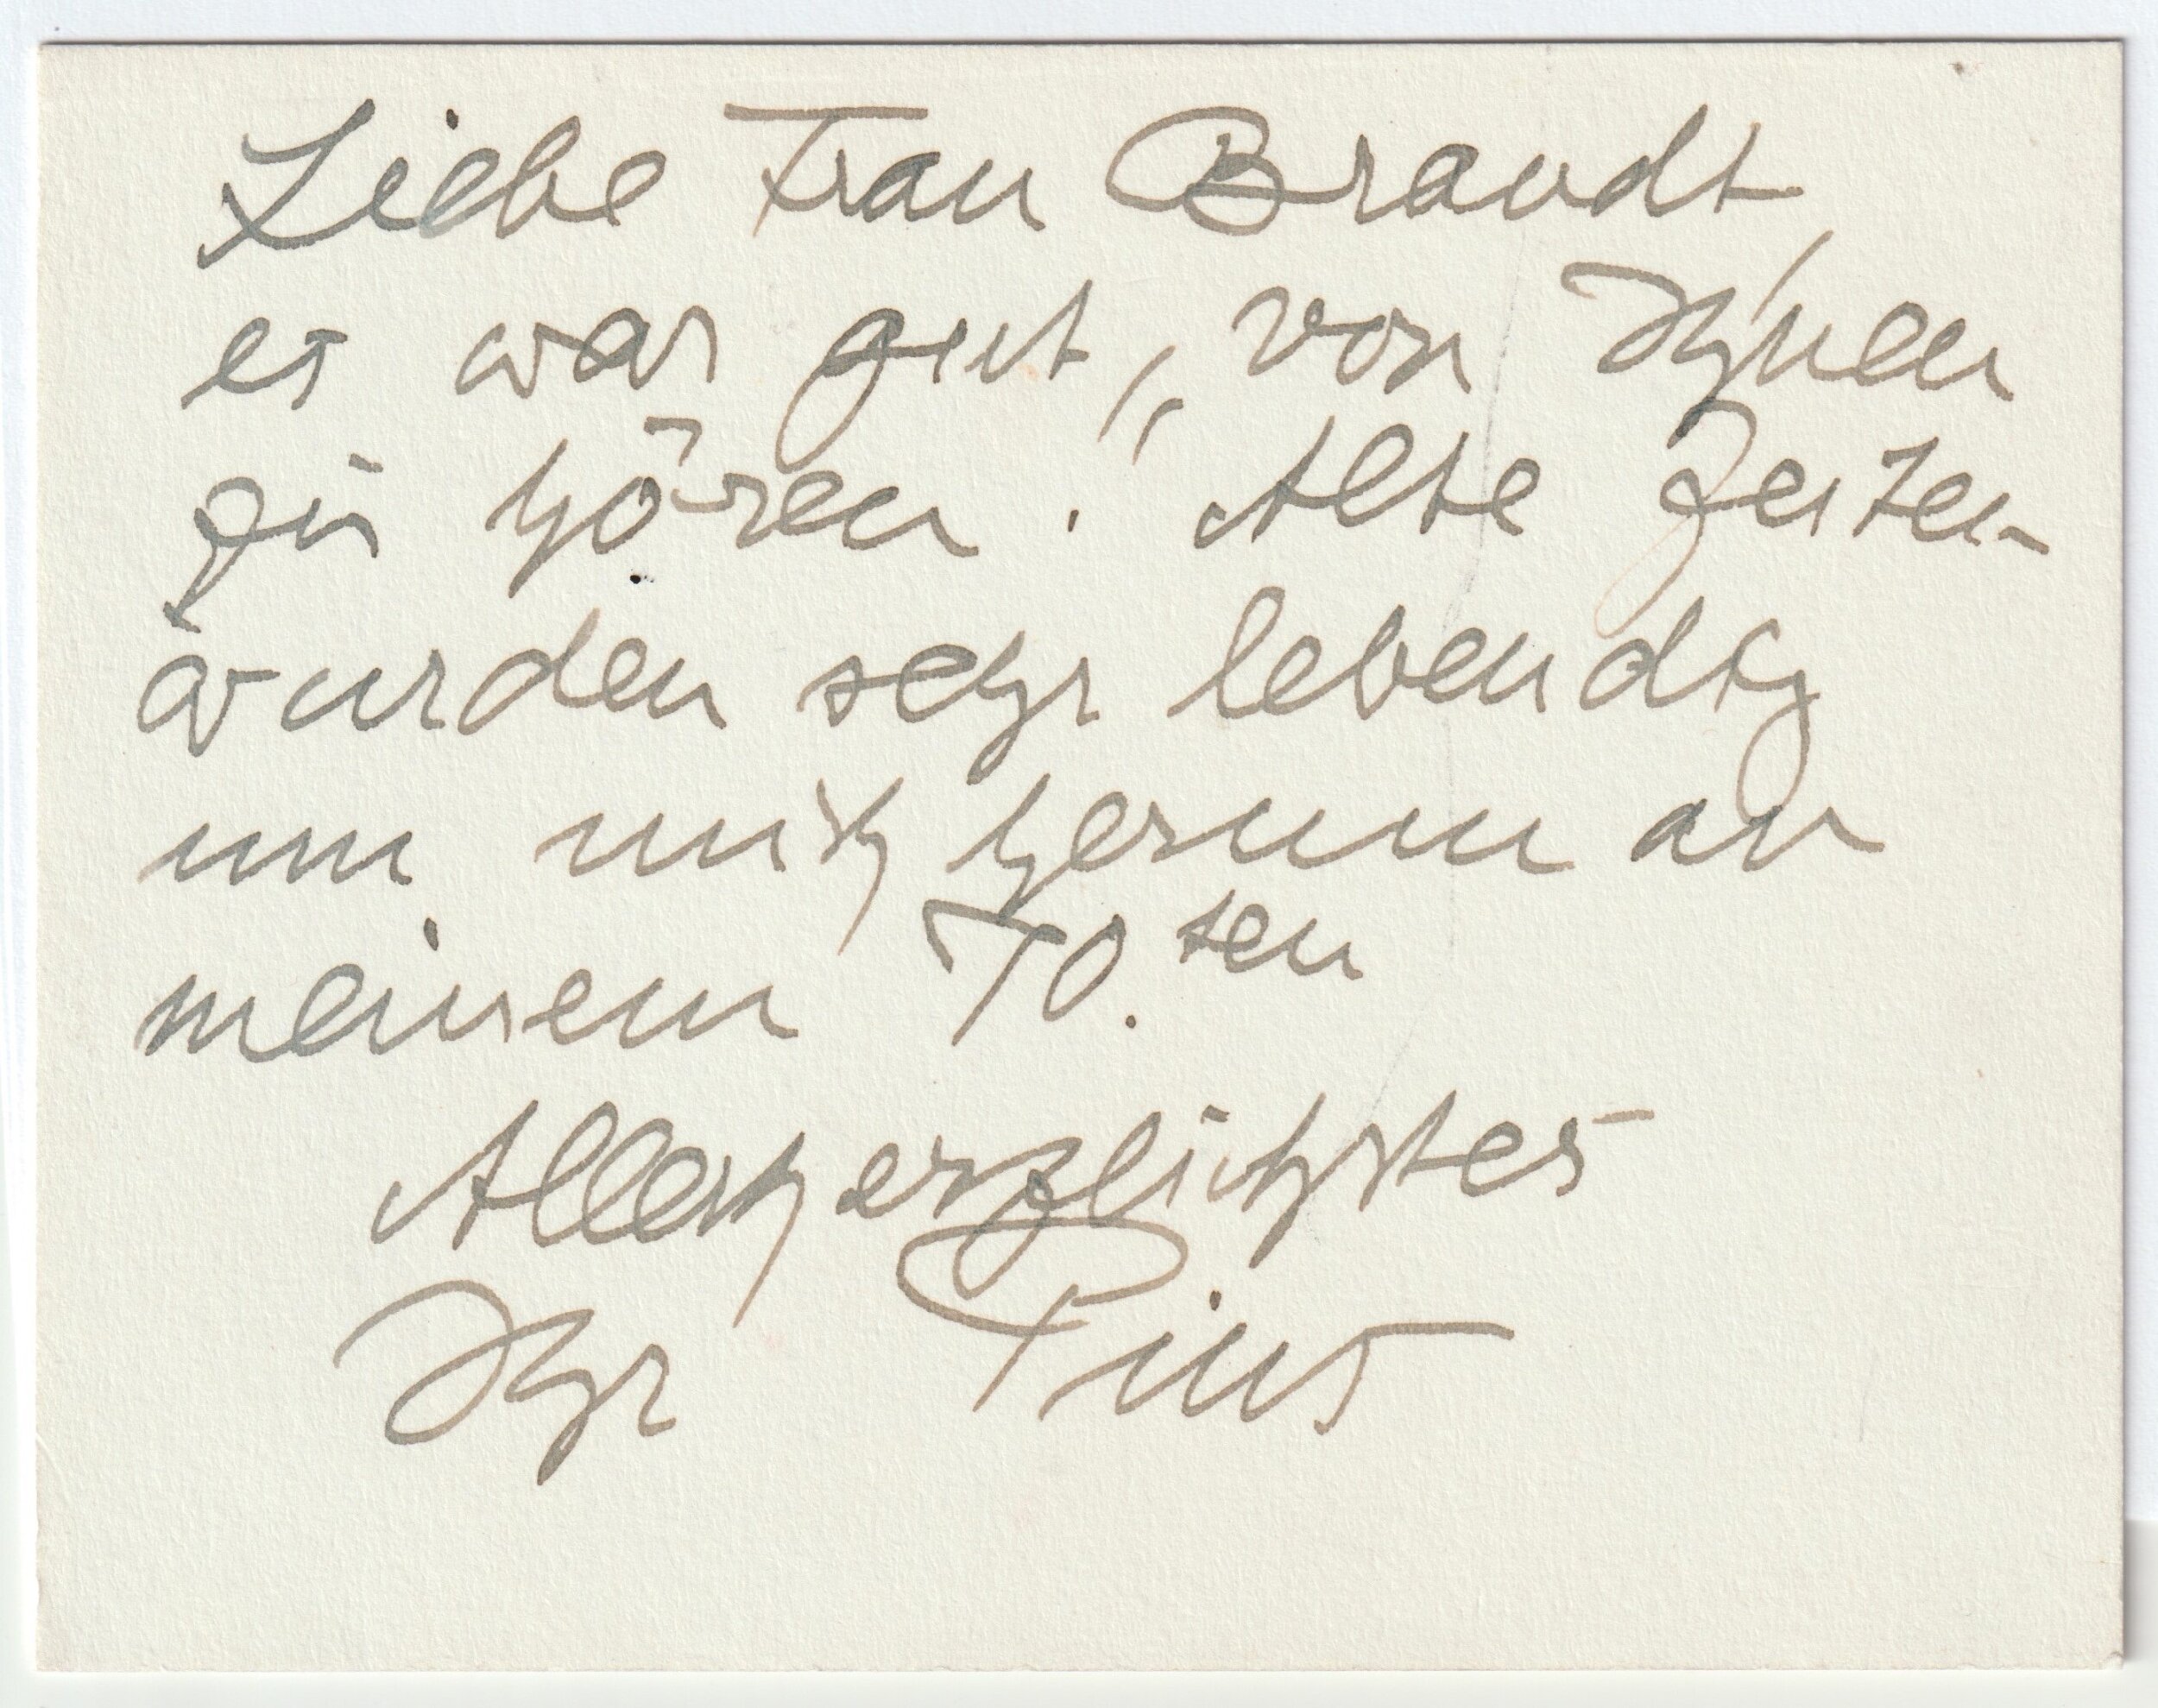 Liebe Frau Brandt,
es war gut, von Ihnen
zu hören. Alte Zeiten
wurden sehr lebendig
um mich herum an
meinem 70.ten
Allerherzlichstes
Ihr Pius